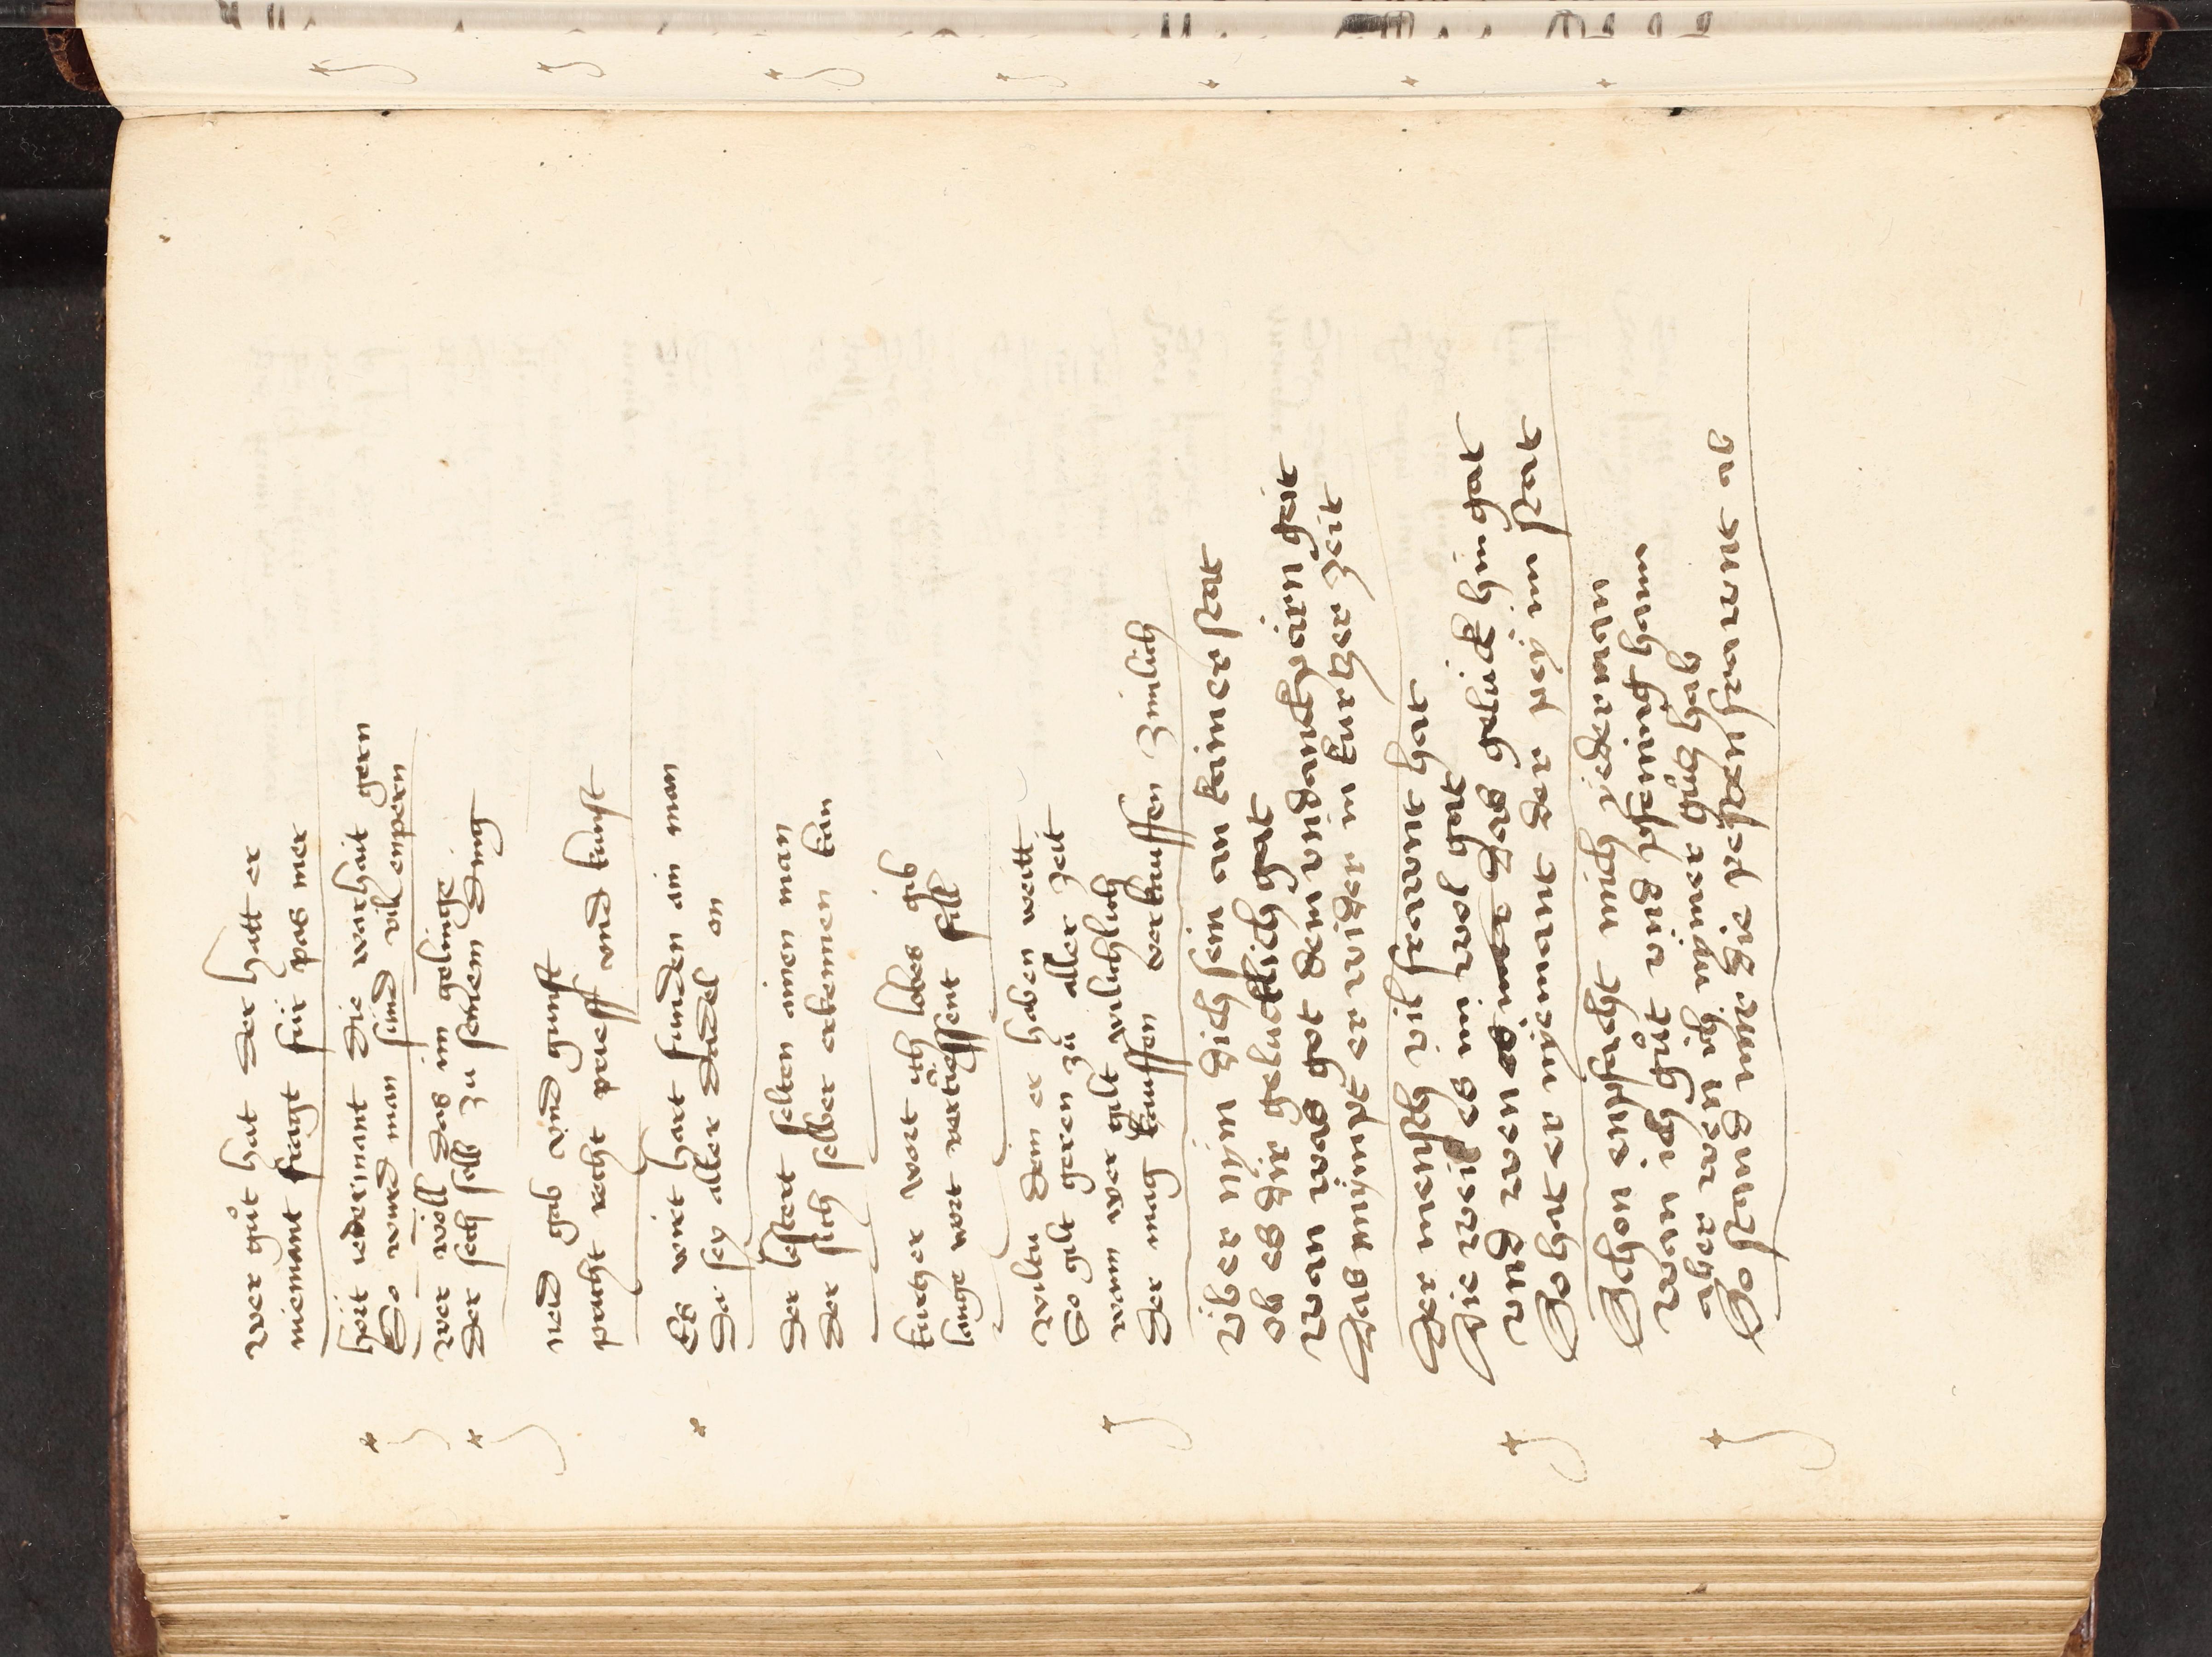 wer gůt hat der hatt er
niemant fragt für pas mer
hört iederimant die warhait gern
So wurd man sünd vil enpern
wer wöll das im gelinge
der sech selb zu seinem ding
neid gab vnd gunst
pricht recht prieff vnd kunst
Es wirt hart funden ain man
der sey aller dadel on
der lestert selten ainen man
der sich selber erkennen kan
kurtzer wort ich lobes gib
lange wort vertieffent sill
wiltu dein er haben weitt
So gilt geren zů aller zeit
wann wer gilt willichlich
der mag kauffen verkauffen zimlich
über nÿm dich sein an keiner stat
ob es dir geluckhlich gat
wan was got dem vndanckpärn geit
das nÿmpt er wider in kurtzer zeit
der mensch vil frawnt hat
die weil es im wol gat
vnd wen es im das gelück hin gat
So hat er nÿemant der peÿ im stat
Schon enpfacht mich ÿederman
wan ich gůt vnd pfening hann
aber wen ich nÿmer gůtz hab
So stand mir die pesten frawnt ab